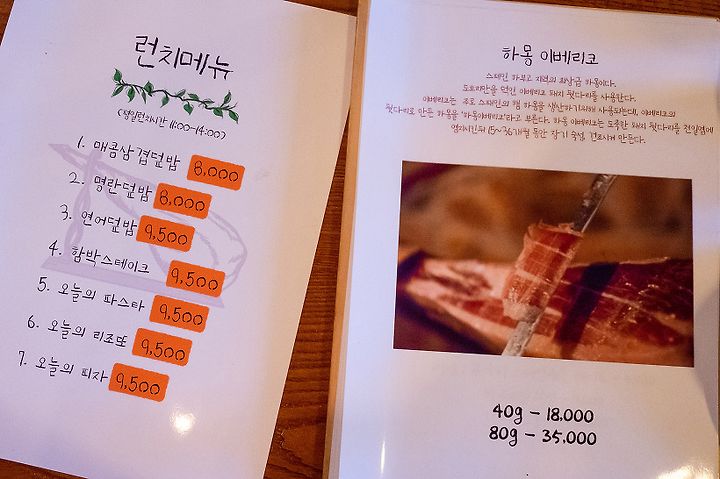 런치메뉴
(평일런치시간 11:00-14:00)
1. 매콤삼겹덮밥 8,000
2. 명란덮밥 8,000
3. 연어덮밥 9,500
4. 함박스테이크 9,500
5. 오늘의 파스타 9,500
6. 오늘의 리조또 9,500
7. 오늘의 피자 9,500
하몽 이베리코
스페인 하부고 지역의 최상급 하몽이다.
도토리만을 먹인 이베리코 돼지 뒷다리를 사용한다.
이베리코는 주로 스페인의 햄 하몽을 생산하기위해 사용되는데, 이베리코의
뒷다리로 만든 하몽을 '하몽이베리코'라고 부른다. 하몽 이베리코는 도축한 돼지 뒷다리를 천일염에
염지시킨뒤 15~36개월 동안 장기 숙성, 건조시켜 만든다.
40g - 18,000
80g - 35,000